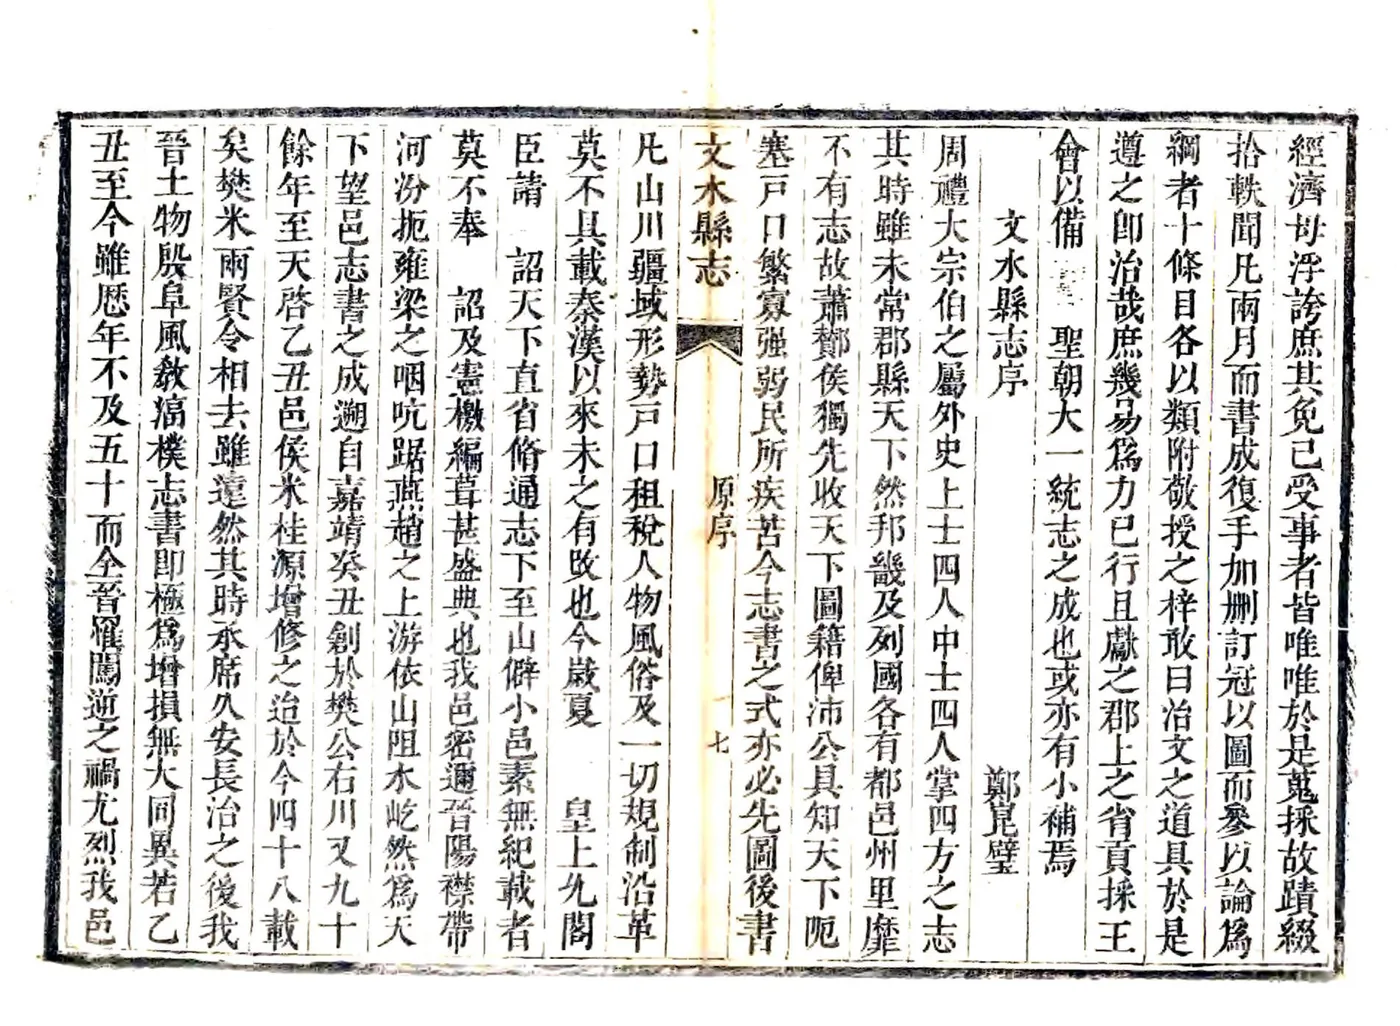 經濟毋浮誇庶其免已受事者皆唯唯於是蒐採故蹟綴
拾軼聞凡兩月而書成復手加刪訂冠以圖而參以論為
綱者十條目各以類附敬授之梓敢曰治文之道具於是
遵之卽治哉庶幾易為力已行且獻之郡上之省貢採王
會以備 聖朝大一統志之成也或亦有小補焉
文水縣志序
鄭崑璧
周禮大宗伯之屬外史上士四人中士四人掌四方之志
其時雖未常郡縣天下然邦畿及列國各有都邑州里靡
不有志故蕭酇侯獨先收天下圖籍俾沛公具知天下阨
塞戸口繁寡强弱民所疾苦今志書之式亦必先圖後書
文水縣志
原序
七
凡山川疆域形勢戸口租稅人物風俗及一切規制沿革
莫不具載秦漢以來未之有攺也今嵗夏 皇上允閣
臣請 詔天下直省脩通志下至山僻小邑素無紀載者
莫不奉 詔及憲檄編葺甚盛典也我邑密邇晉陽襟帶
河汾扼雍梁之咽吭踞燕趙之上游依山阻水屹然為天
下望邑志書之成遡自嘉靖癸丑創於樊公右川又九十
餘年至天啓乙丑邑侯米桂源增修之迨於今四十八載
矣樊米兩賢令相去雖遠然其時承席久安長治之後我
晉土物殷阜風敎湻樸志書即極為增損無大同異若乙
丑至今雖歴年不及五十而全晉罹闖逆之禍尤烈我邑